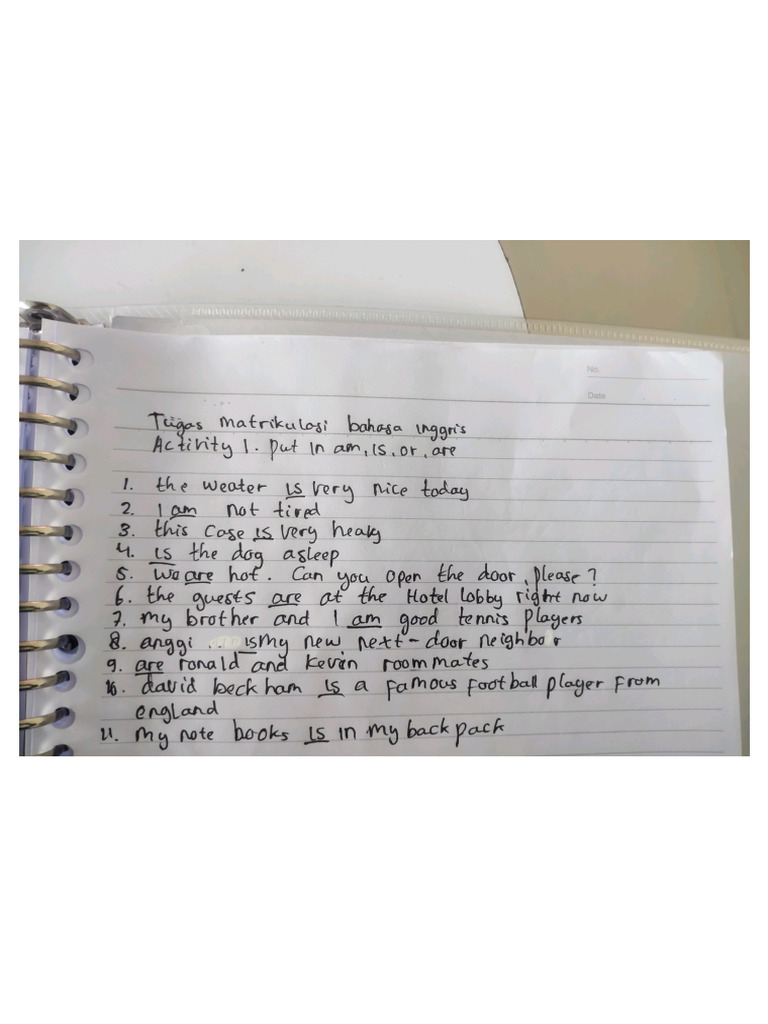 No.
Date
Tugas matrikulasi bahasa inggris
Activity 1. Put in am, is, or, are
1. the weater is very nice today
2. I am not tired
3. this case is very heaky
4. is the dog asleep
5. We are hot. Can you open the door, please?
6. the guests are at the Hotel lobby right now
7. my brother and I am good tennis players
8. anggi .. is my new next-door neighbor
9. are ronald and kevin roommates
10. david beckham is a famous football player from
england
11. my note books is in my backpack